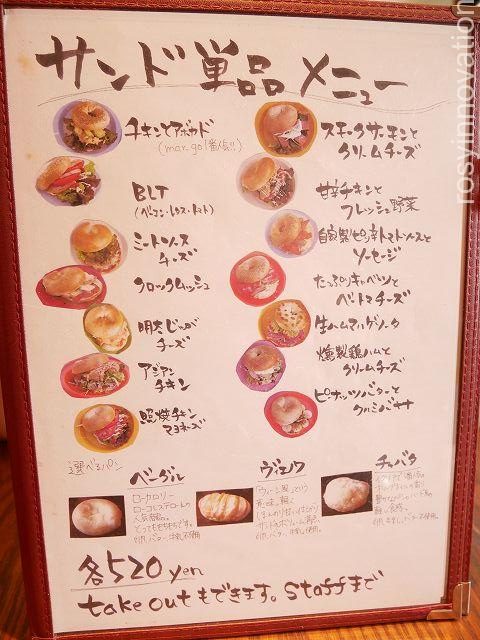 サンド単品メニュー
チキンとアボカド
(mar-go!1番人気!!)
BLT
(ベーコン・レタス・トマト)
ミートソース
チーズ
クロックムッシュ
明太じゃが
チーズ
アジアン
チキン
照焼チキン
マヨネーズ
スモークサーモンと
クリームチーズ
甘辛チキンと
フレッシュ野菜
自家製ピリ辛トマトソースと
ソーセージ
たっぷりキャベツと
ベーコントマトチーズ
生ハムマルゲリータ
燻製鶏ハムと
クリームチーズ
ピーナッツバターと
クルミバナナ
選べるパン
ベーグル
ローカロリー
ローコレステロールの
人気商品。
とってももちもちです。
卵、バター、牛乳不使用
ヴィエノワ
「ウィーン風」という
意味。軽く
ほんのり甘い
チャバタ
各520yen
take outもできます。staffまで
rosyinnovation